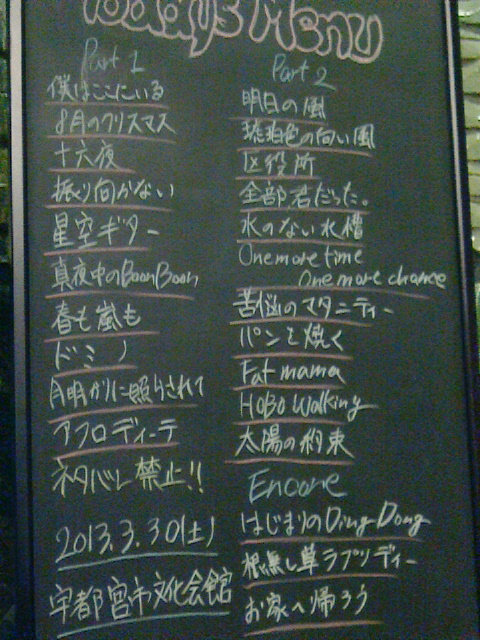 Todays Menu
Part 1
僕はここにいる
8月のクリスマス
十六夜
振り向かない
星空ギター
真夜中のBoonBoon
春も嵐も
ドミノ
月明かりに照らされて
アフロディーテ
ネタバレ禁止!!
2013.3.30(土)
宇都宮市文化会館
Part 2
明日の風
琥珀色の向い風
区役所
全部君だった。
水のない水槽
One more time
One more chance
苦悩のマタニティー
パンを焼く
Fat mama
HoBo Walking
太陽の約束
Encore
はじまりのDing Dong
根無し草ラプソディー
お家へ帰ろう